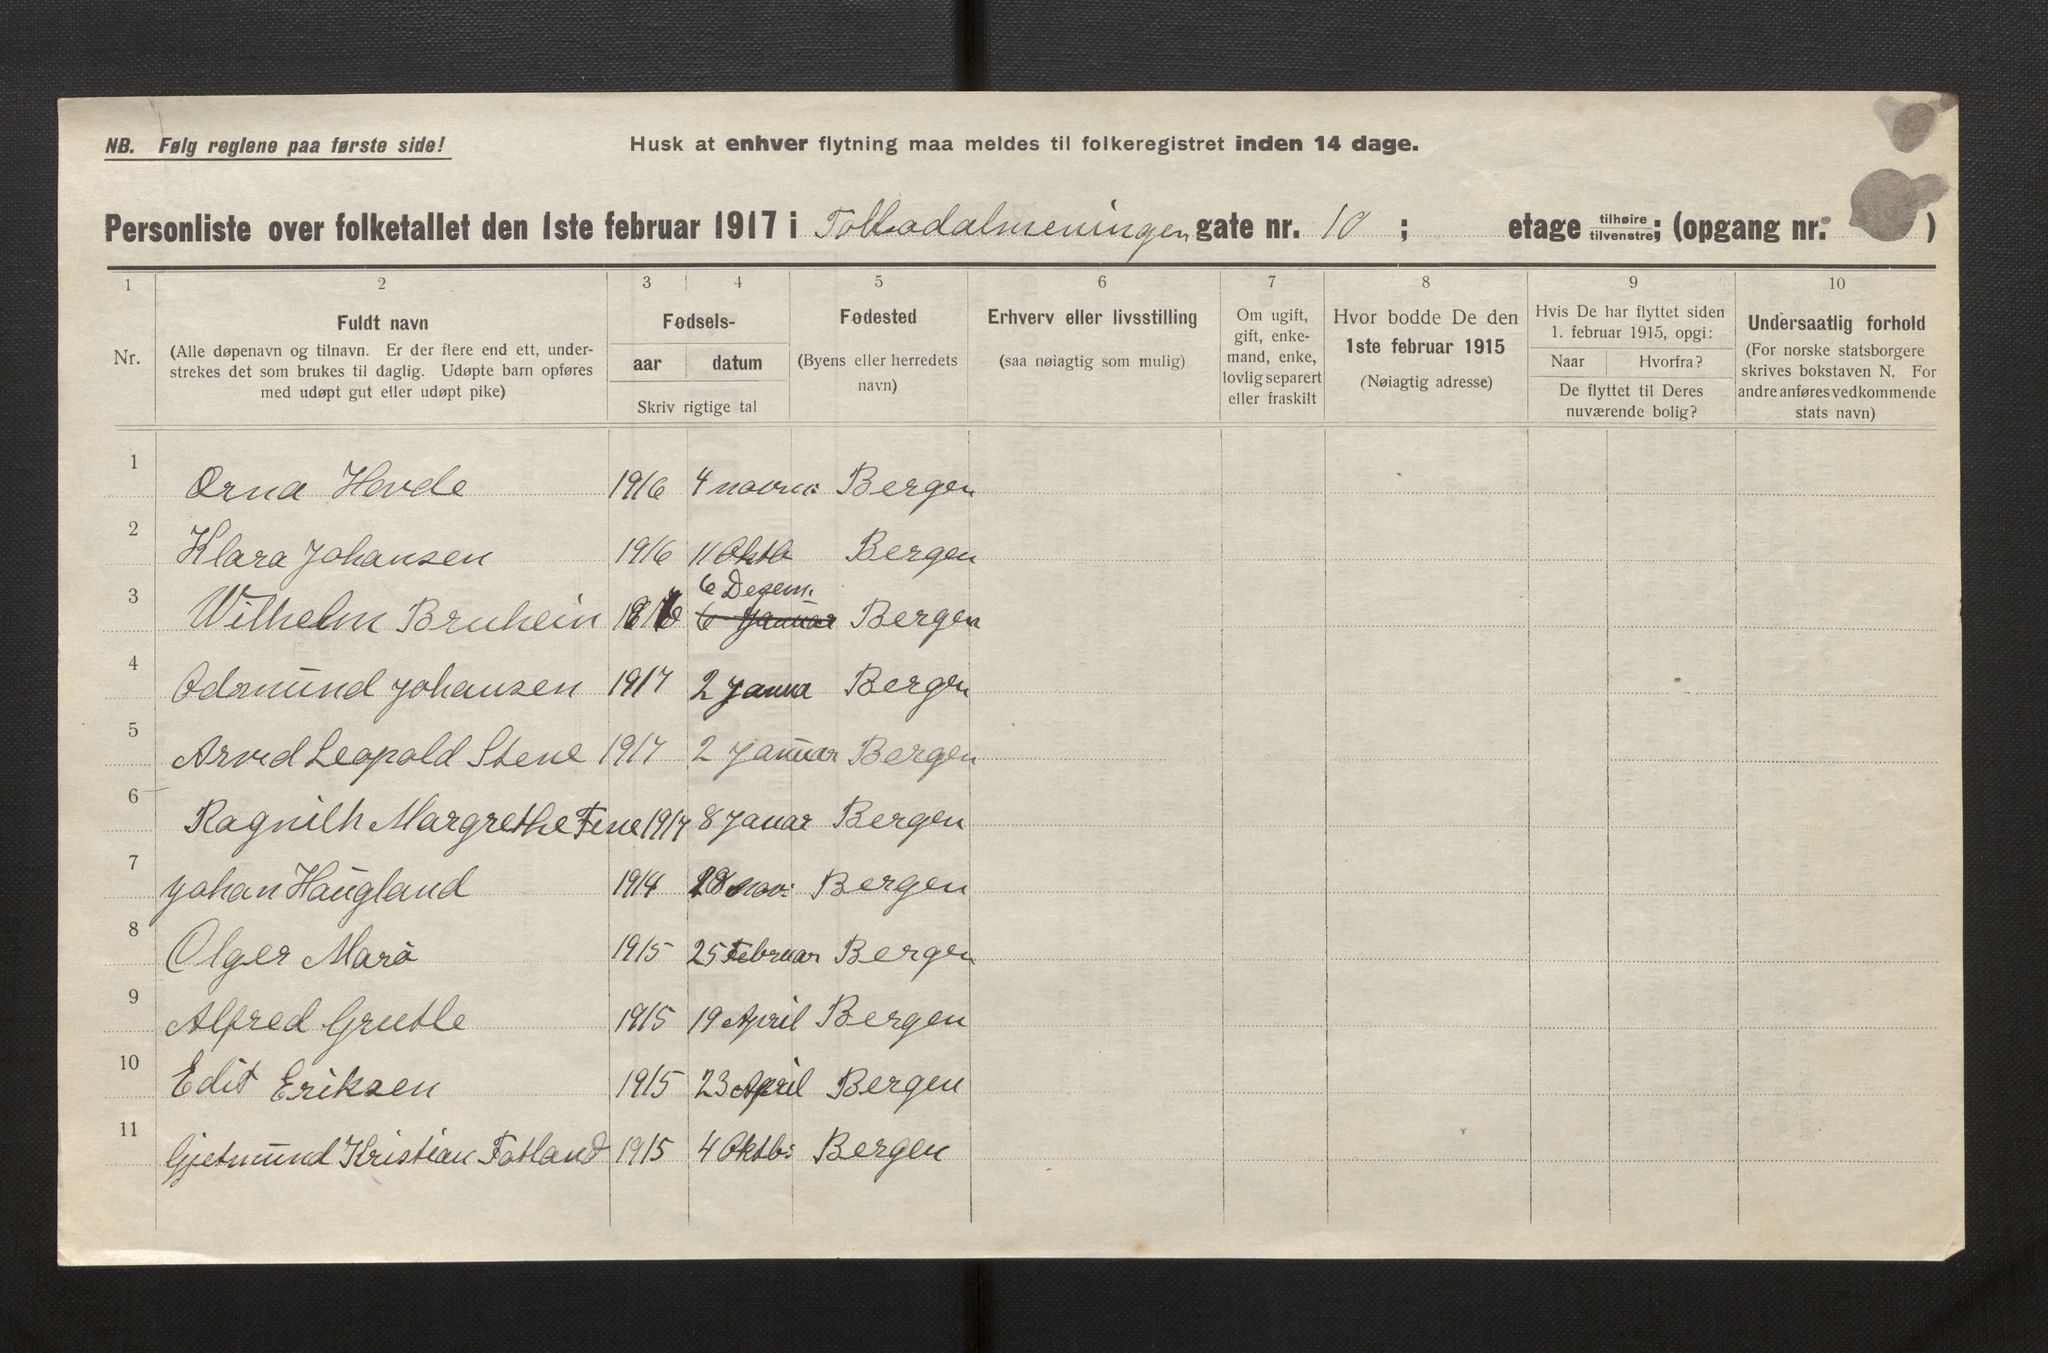 NB. Følg reglene paa første side!
Husk at enhver flytning maa meldes til folkeregistret inden 14 dage.
Personliste over folketallet den 1ste februar 1917 i Tolbodalmeningen gate nr. 10 ; etage tilhøire tilvenstre; (opgang nr. )
1 2 3 4 5 6 7 8 9 10
Nr.
Fuldt navn
(Alle døpenavn og tilnavn. Er der flere end ett, under-
strekes det som brukes til daglig. Udøpte barn opføres
med udøpt gut eller udøpt pike)
Fødsels-
aar datum
Skriv rigtige tal
Fødested
(Byens eller herredets
navn)
Erhverv eller livsstilling
(saa nøiagtig som mulig)
Om ugift,
gift, enke-
mand, enke,
lovlig separert
eller fraskilt
Hvor bodde De den
1ste februar 1915
(Nøiagtig adresse)
Hvis De har flyttet siden
1. februar 1915, opgi:
Naar Hvorfra?
De flyttet til Deres
nuværende bolig?
Undersaatlig forhold
(For norske statsborgere
skrives bokstaven N. For
andre anføres vedkommende
stats navn)
1 Erna Hovde 1916 4 novm: Bergen
2 Klara Johansen 1916 11 Oktb Bergen
6 Dezem.
3 Wilhelm Bruhein 1916 6 Januar Bergen
4 Odmund Johansen 1917 2 Janua Bergen
5 Arvid Leopold Stene 1917 2 Januar Bergen
6 Ragnilh Margrethe Tene 1917 8 Januar Bergen
7 Johan Haugland 1914 28 nov: Bergen
8 Olger Marø 1915 25 Februar Bergen
9 Alfred Grutle 1915 19 April Bergen
10 Edit Eriksen 1915 23 April Bergen
11 Gjetmund Kristian Fotland 1915 4 Oktb: Bergen